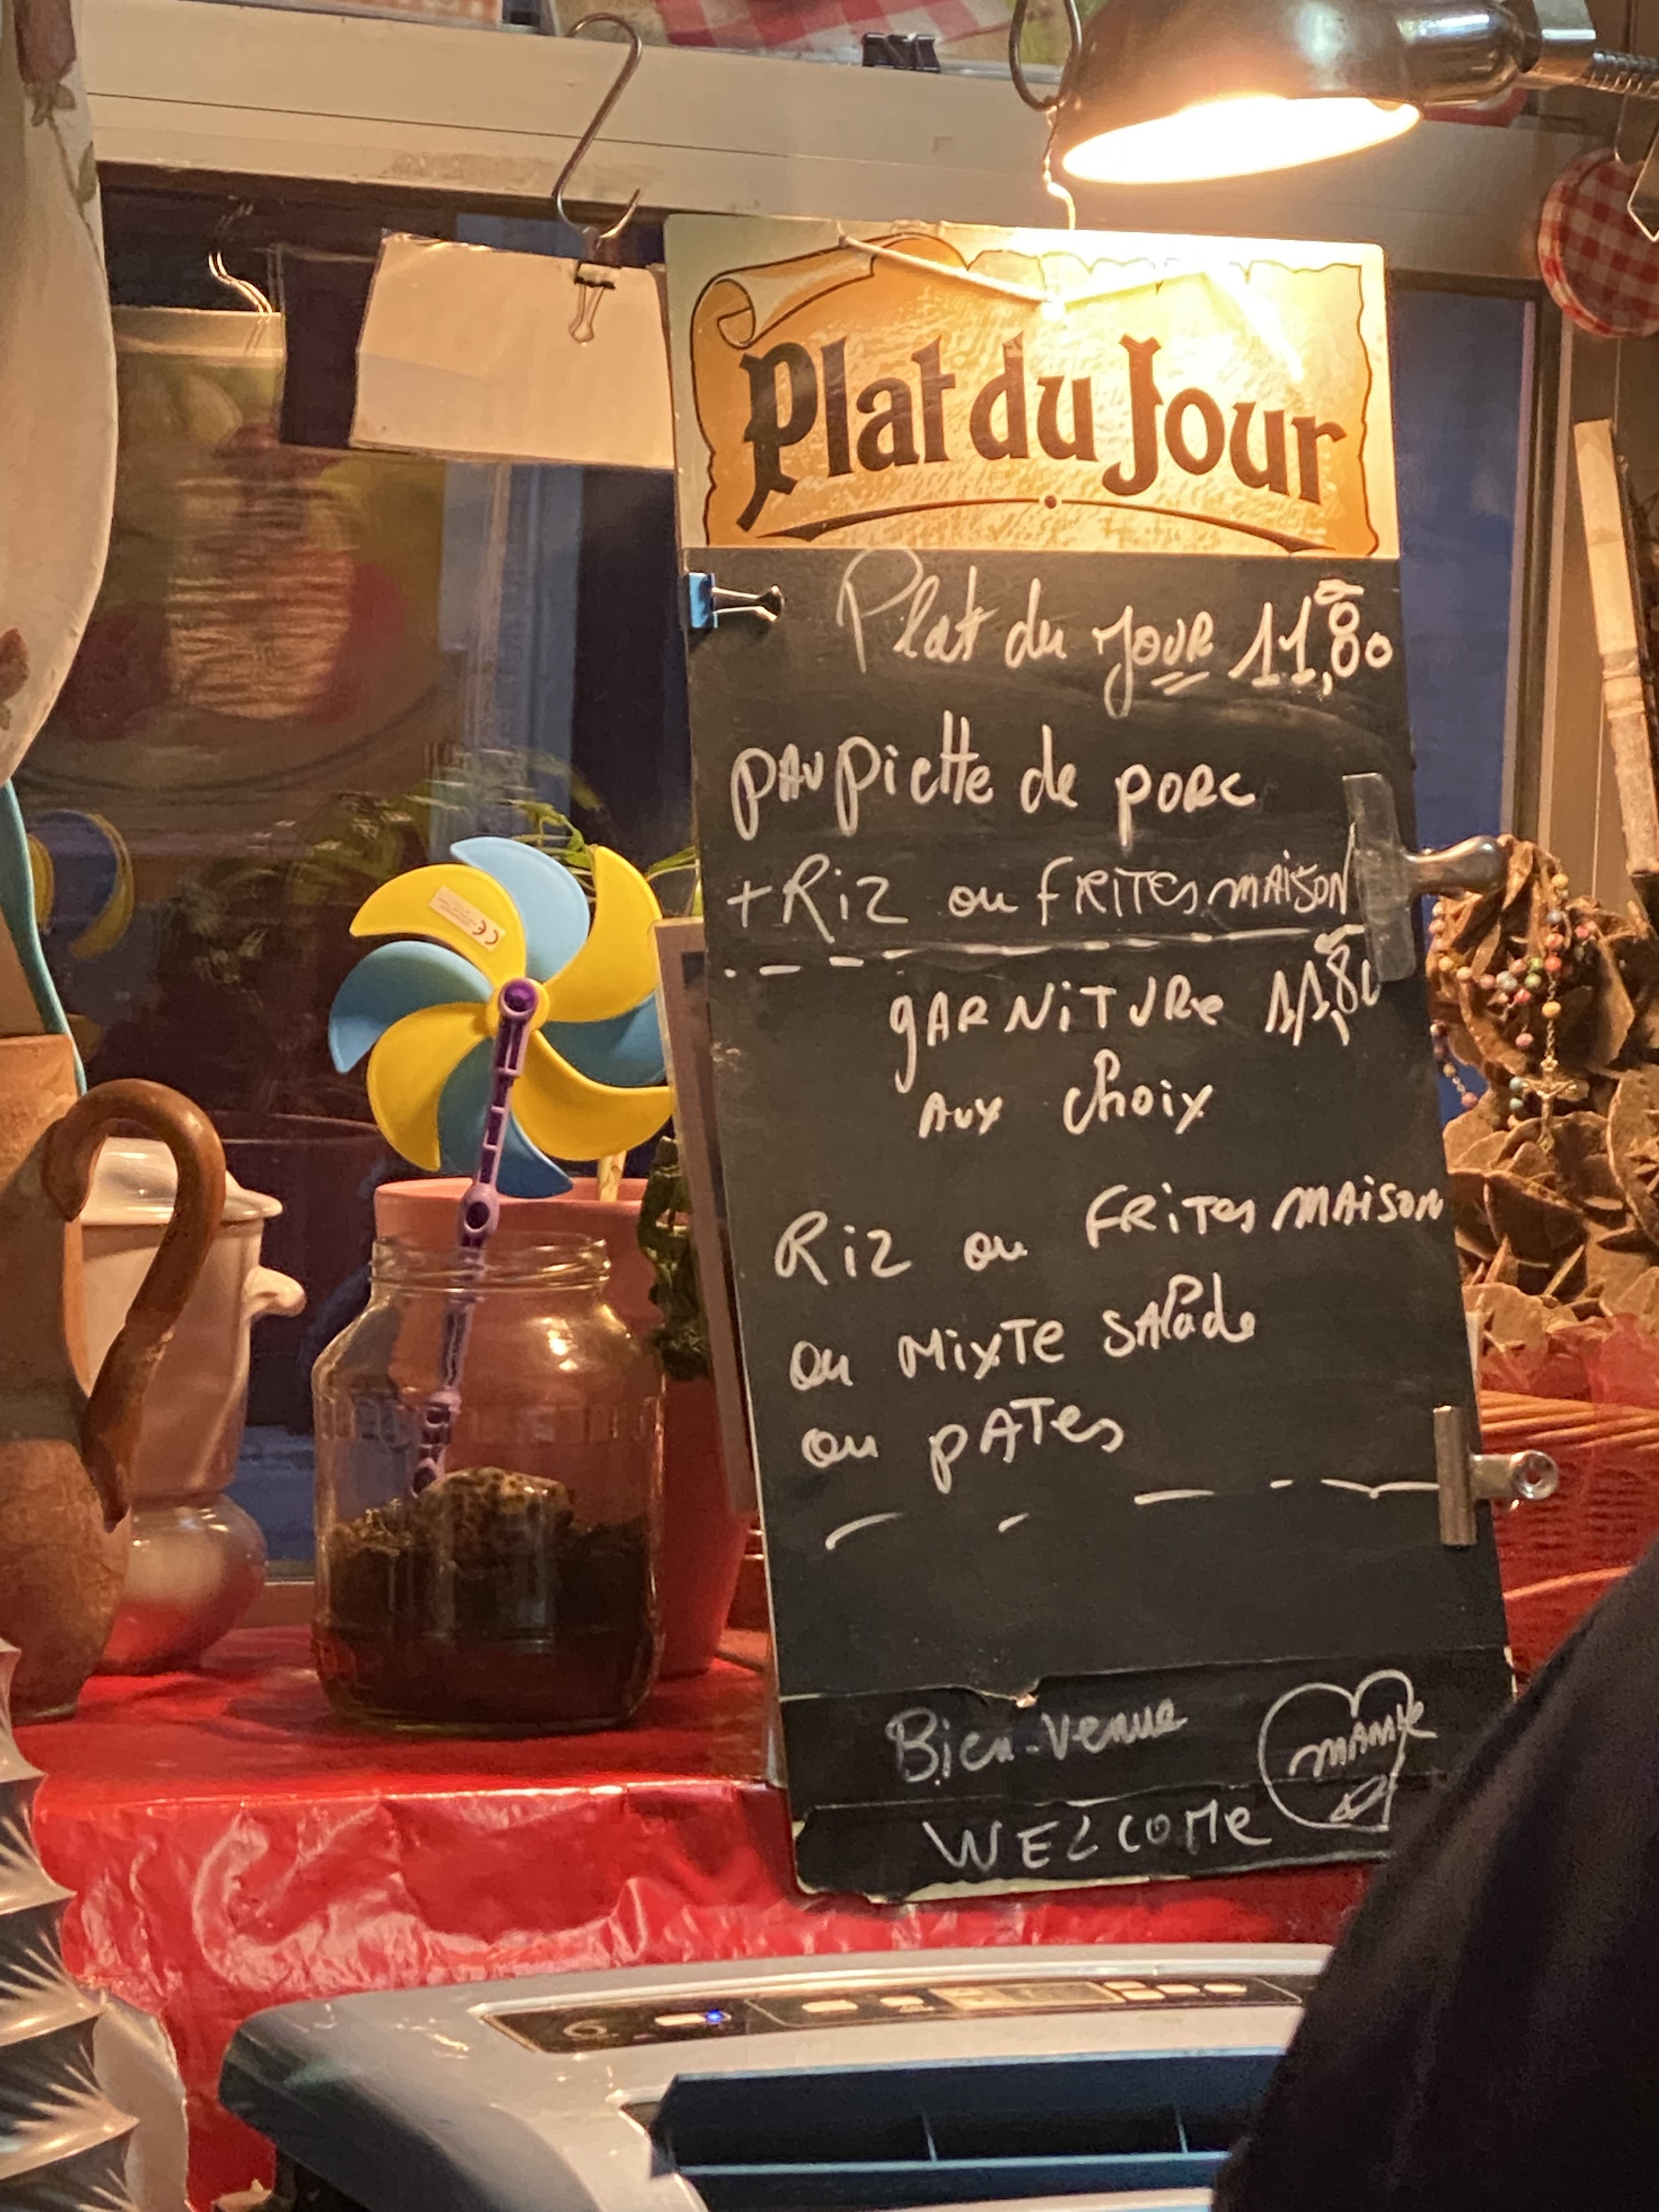 Plat du Jour
Plat du JOUR 11,80
PAUPiette de PORC
+ Riz ou FRITES MAISON
GARNITURE 11,80
AUX choix
Riz ou FRITES MAISON
ou MIXTE SALADE
ou PATES
Bien-venue
WELCOME
MAMYE